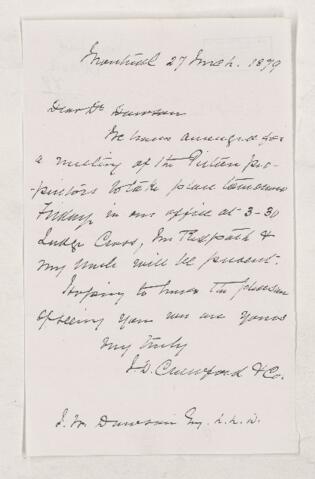 Montreal 27 March. 1879
Dear Dr Dawson
We have arranged for
a meeting of the Pictou pro-
prietors to take place tomorrow
Friday, in our office at 3-30
Judge Cross, Mr Redpath &
my Uncle will be present.
Hoping to have the pleasure
of seeing you we are yours
very truly
J. D. Crawford & Co.
J. W. Dawson Esq. L.L.D.